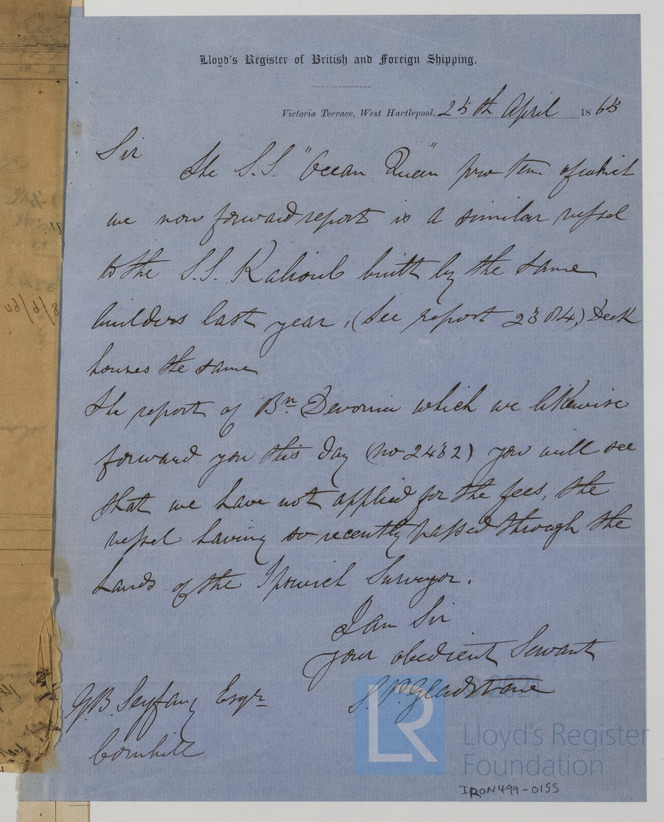 Lloyd's Register of British and Foreign Shipping.
Victoria Terrace, West Hartlepool, 25th April 1863
Sir
The S.S. "Ocean Queen" pro tem of which
we now forward report is a similar vessel
to the S.S. built by the same
builders last year, (See report 2304) Deck
houses the same
The report of Bn Devonia which we likewise
forward you this day (no 2432) you will see
that we have not applied for the fees, the
vessel having so recently passed through the
hands of the Ipswich Surveyor.
I am Sir
your obedient Servant
Gladstone
G.B. Seyfang Esqr
Cornhill
LR
Lloyd's Register
Foundation
IRON499-0155